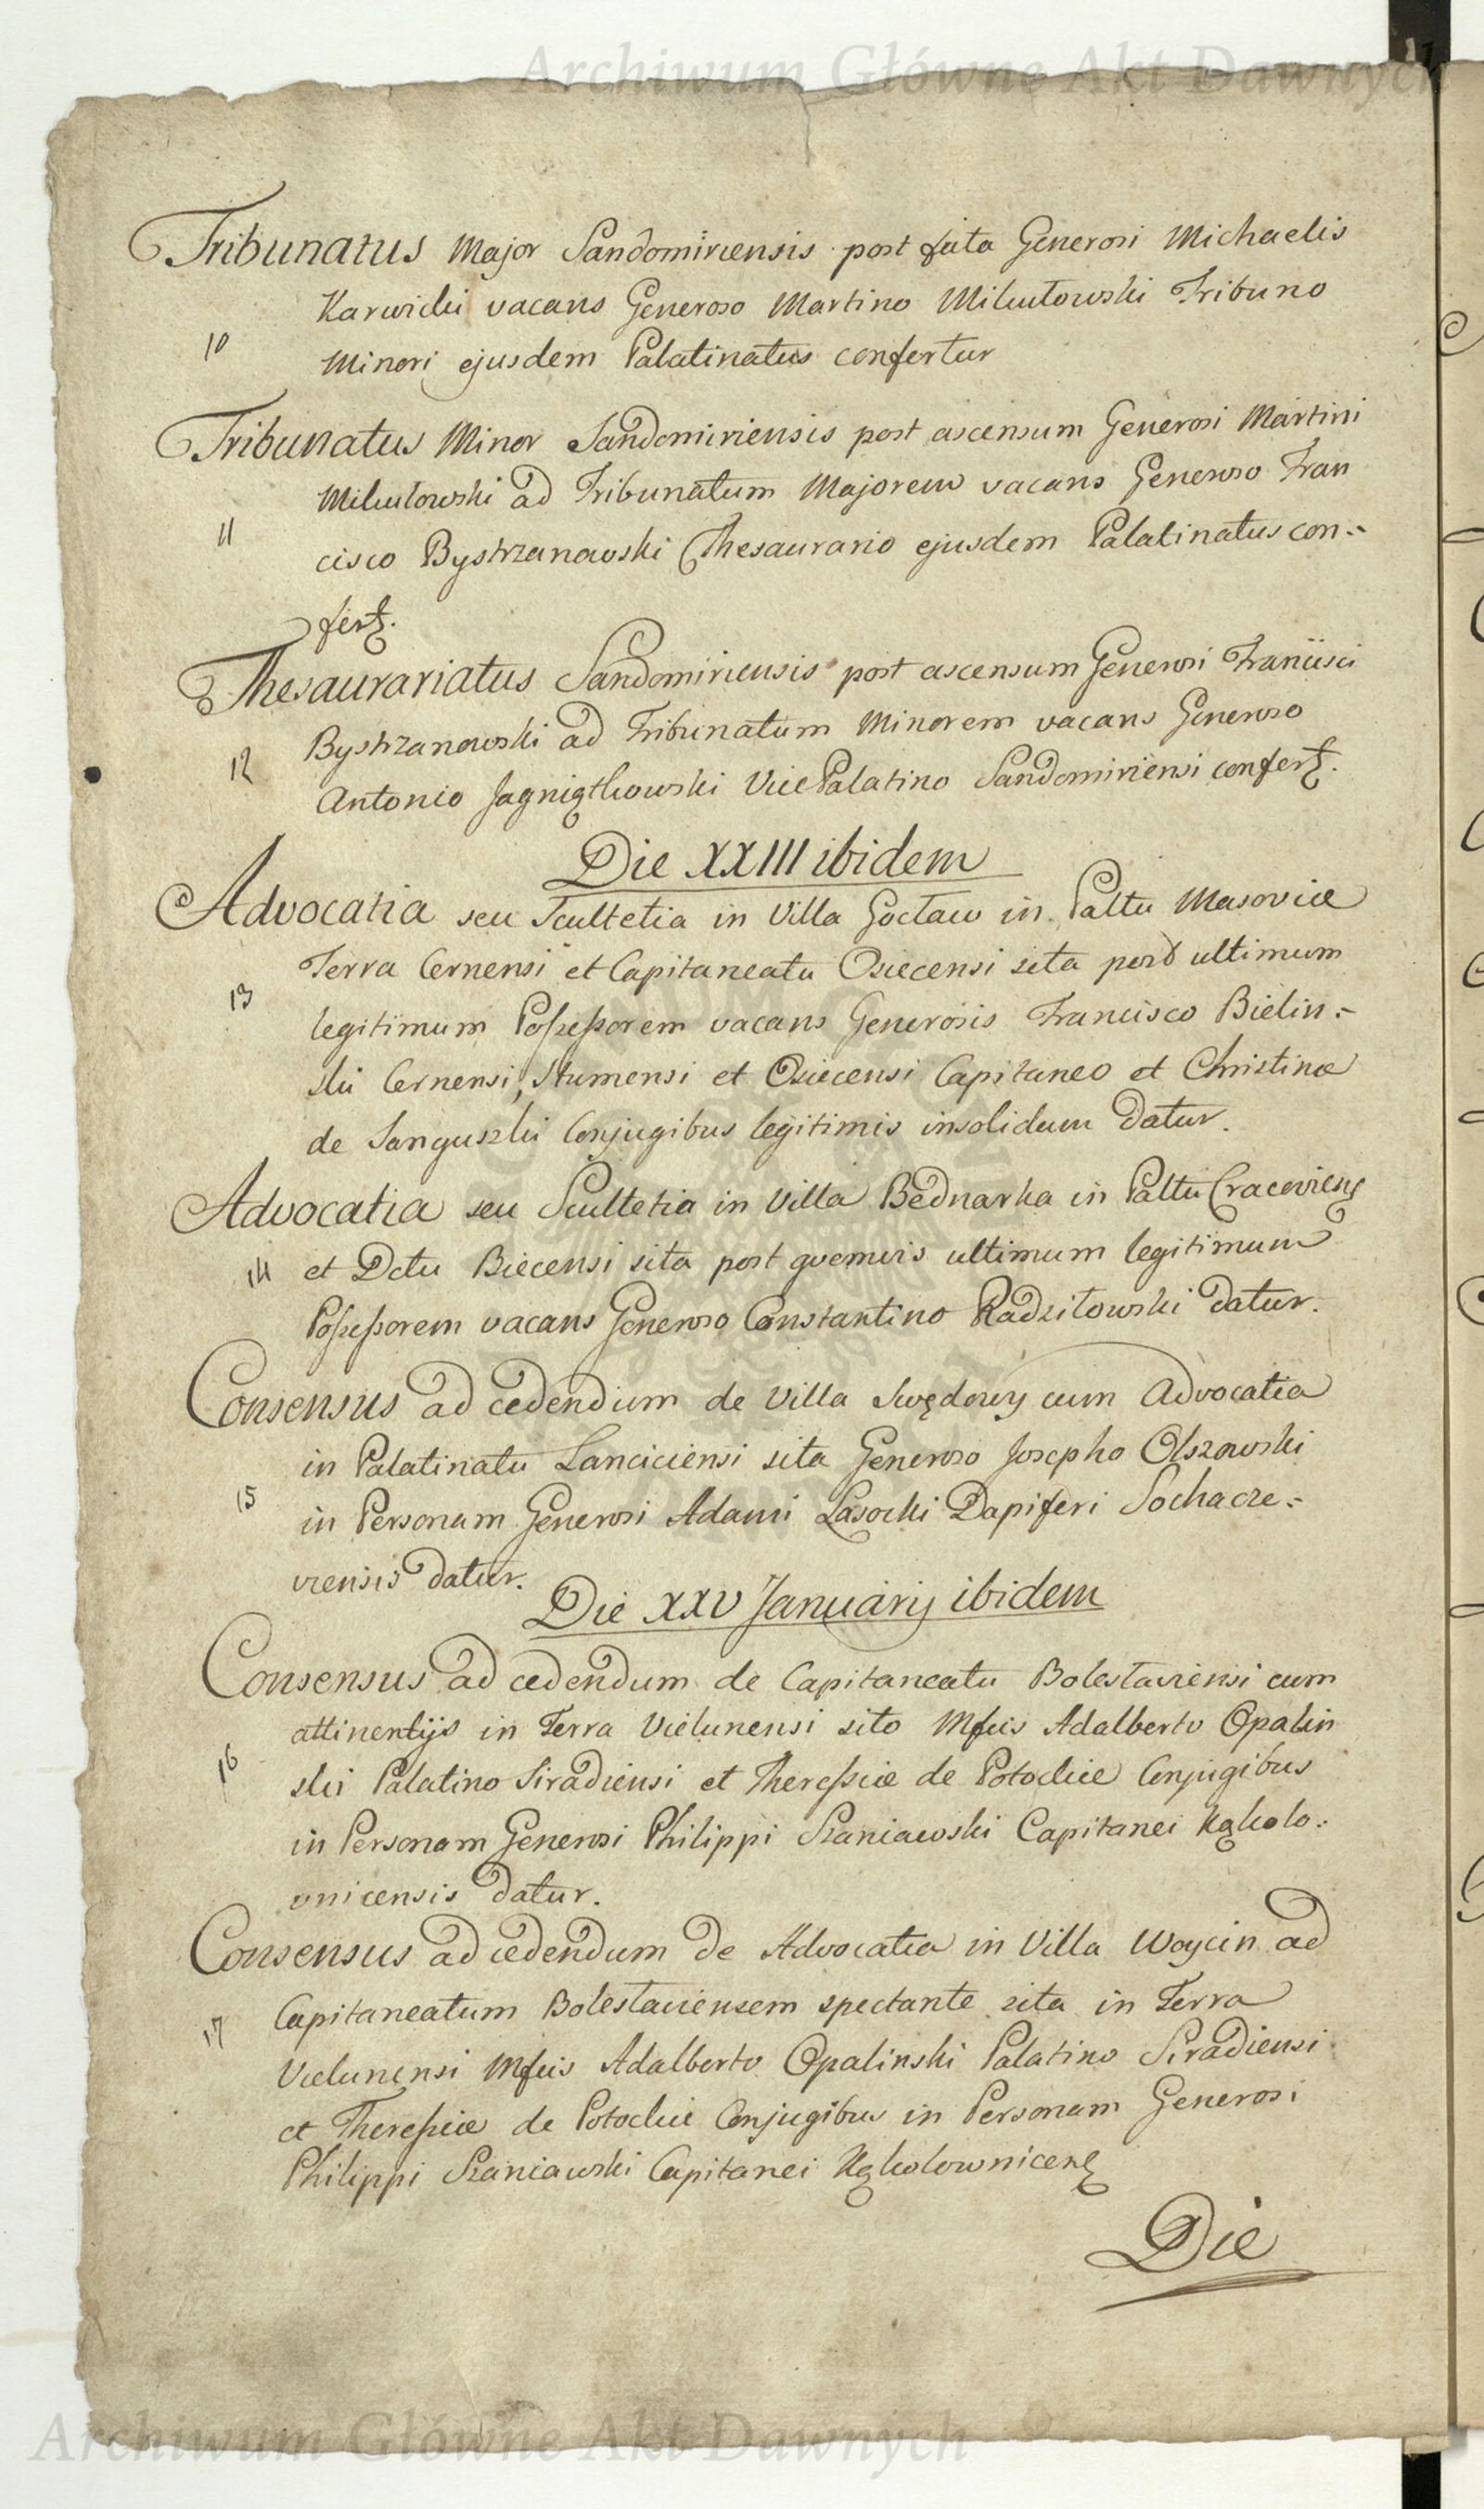 Archiwum Główne Akt Dawnych
Tribunatus Major Sandomiriensis post fata Generosi Michaelis
Karwicki vacans Generoso Martino Milułowski Tribuno
10
Minori ejusdem Palatinatus confertur
Tribunatus Minor Sandomiriensis post ascensum Generosi Martini
Milułowski ad Tribunatum Majorem vacans Generoso Fran
11
cisco Bystrzanowski Thesaurario ejusdem Palatinatus con:-
fert.
Thesaurariatus Sandomiriensis post ascensum Generosi Francisci
Bystrzanowski ad Tribunatum Minorem vacans Generoso
12
Antonio Jagniątkowski Vice Palatino Sandomiriensi confert.
Die XXIII ibidem
Advocatia seu Scultetia in Villa Gocław in Pallu Masoviæ
Terra Cernensi et Capitaneatu Osiecensi sita post ultimum
13
legitimum Possessorem vacans Generosis Francisco Bielin:-
ski Cernensi, Stumensi et Osiecensi Capitaneo et Christinæ
de Sanguszki Conjugibus legitimis insolidum datur.
Advocatia seu Scultetia in Villa Bednarka in Pallu Cracoviens
14 et Dctu Biecensi sita post quemvis ultimum legitimum
Possessorem vacans Generoso Constantino Radziłowski datur.
Consensus ad cedendum de Villa Swędowy cum Advocatia
in Palatinatu Lanciciensi sita Generoso Josepho Olszowski
15
in Personam Generosi Adami Lasocki Dapiferi Sochacze:-
viensis datur.
Die XXV Januarij ibidem
Consensus ad cedendum de Capitaneatu Bolestaviensi cum
attinentijs in Terra Vielunensi sito Mfcis Adalberto Opalin
16
ski Palatino Siradiensi et Theressiæ de Potockie Conjugibus
in Personam Generosi Philippi Szaniawski Capitanei Kąkolo:
wnicensis datur.
Consensus ad cedendum de Advocatia in Villa Woycin ad
Capitaneatum Bolestaviensem spectante sita in Terra
17
Vielunensi Mfcis Adalberto Opalinski Palatino Siradiensi
et Theressiæ de Potockie Conjugibus in Personam Generosi
Philippi Szaniawski Capitanei Kąkolownicens
Die
Archiwum Główne Akt Dawnych